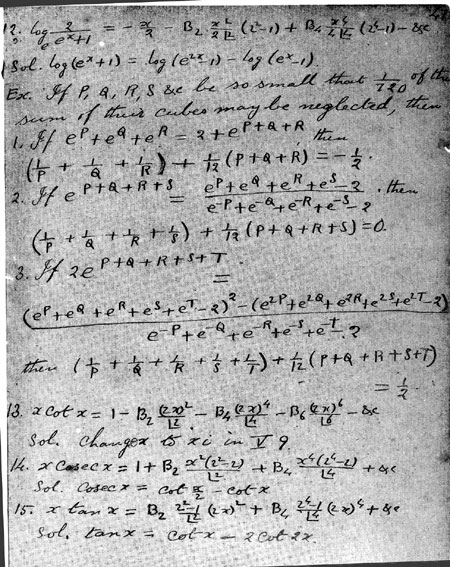 12. log_e 2/(e^x+1) = -x/2 - B₂ x²/(2|2) (2²-1) + B₄ x⁴/(4|4) (2⁴-1) - &c
Sol. log(e^x+1) = log(e^{2x}-1) - log(e^x-1).
Ex. If P, Q, R, S &c be so small that 1/720 of the
sum of their cubes may be neglected, then
1. If e^P+e^Q+e^R = 2+e^{P+Q+R} then
(1/P + 1/Q + 1/R) + 1/12 (P+Q+R) = -1/2.
2. If e^{P+Q+R+S} = (e^P+e^Q+e^R+e^S-2)/(e^{-P}+e^{-Q}+e^{-R}+e^{-S}-2) . then
(1/P + 1/Q + 1/R + 1/S) + 1/12 (P+Q+R+S) = 0.
3. If 2e^{P+Q+R+S+T} =
((e^P+e^Q+e^R+e^S+e^T-2)² - (e^{2P}+e^{2Q}+e^{2R}+e^{2S}+e^{2T}-2))/(e^{-P}+e^{-Q}+e^{-R}+e^{-S}+e^{-T}-2)
then (1/P + 1/Q + 1/R + 1/S + 1/T) + 1/12 (P+Q+R+S+T)
= 1/2.
13. x cot x = 1 - B₂ (2x)²/|2 - B₄ (2x)⁴/|4 - B₆ (2x)⁶/|6 - &c
Sol. change x to xi in V 9.
14. x cosec x = 1 + B₂ x²(2²-2)/|2 + B₄ x⁴(2⁴-2)/|4 + &c
Sol. cosec x = cot x/2 - cot x
15. x tan x = B₂ (2²-1)/|2 (2x)² + B₄ (2⁴-1)/|4 (2x)⁴ + &c
Sol. tan x = cot x - 2 cot 2x.